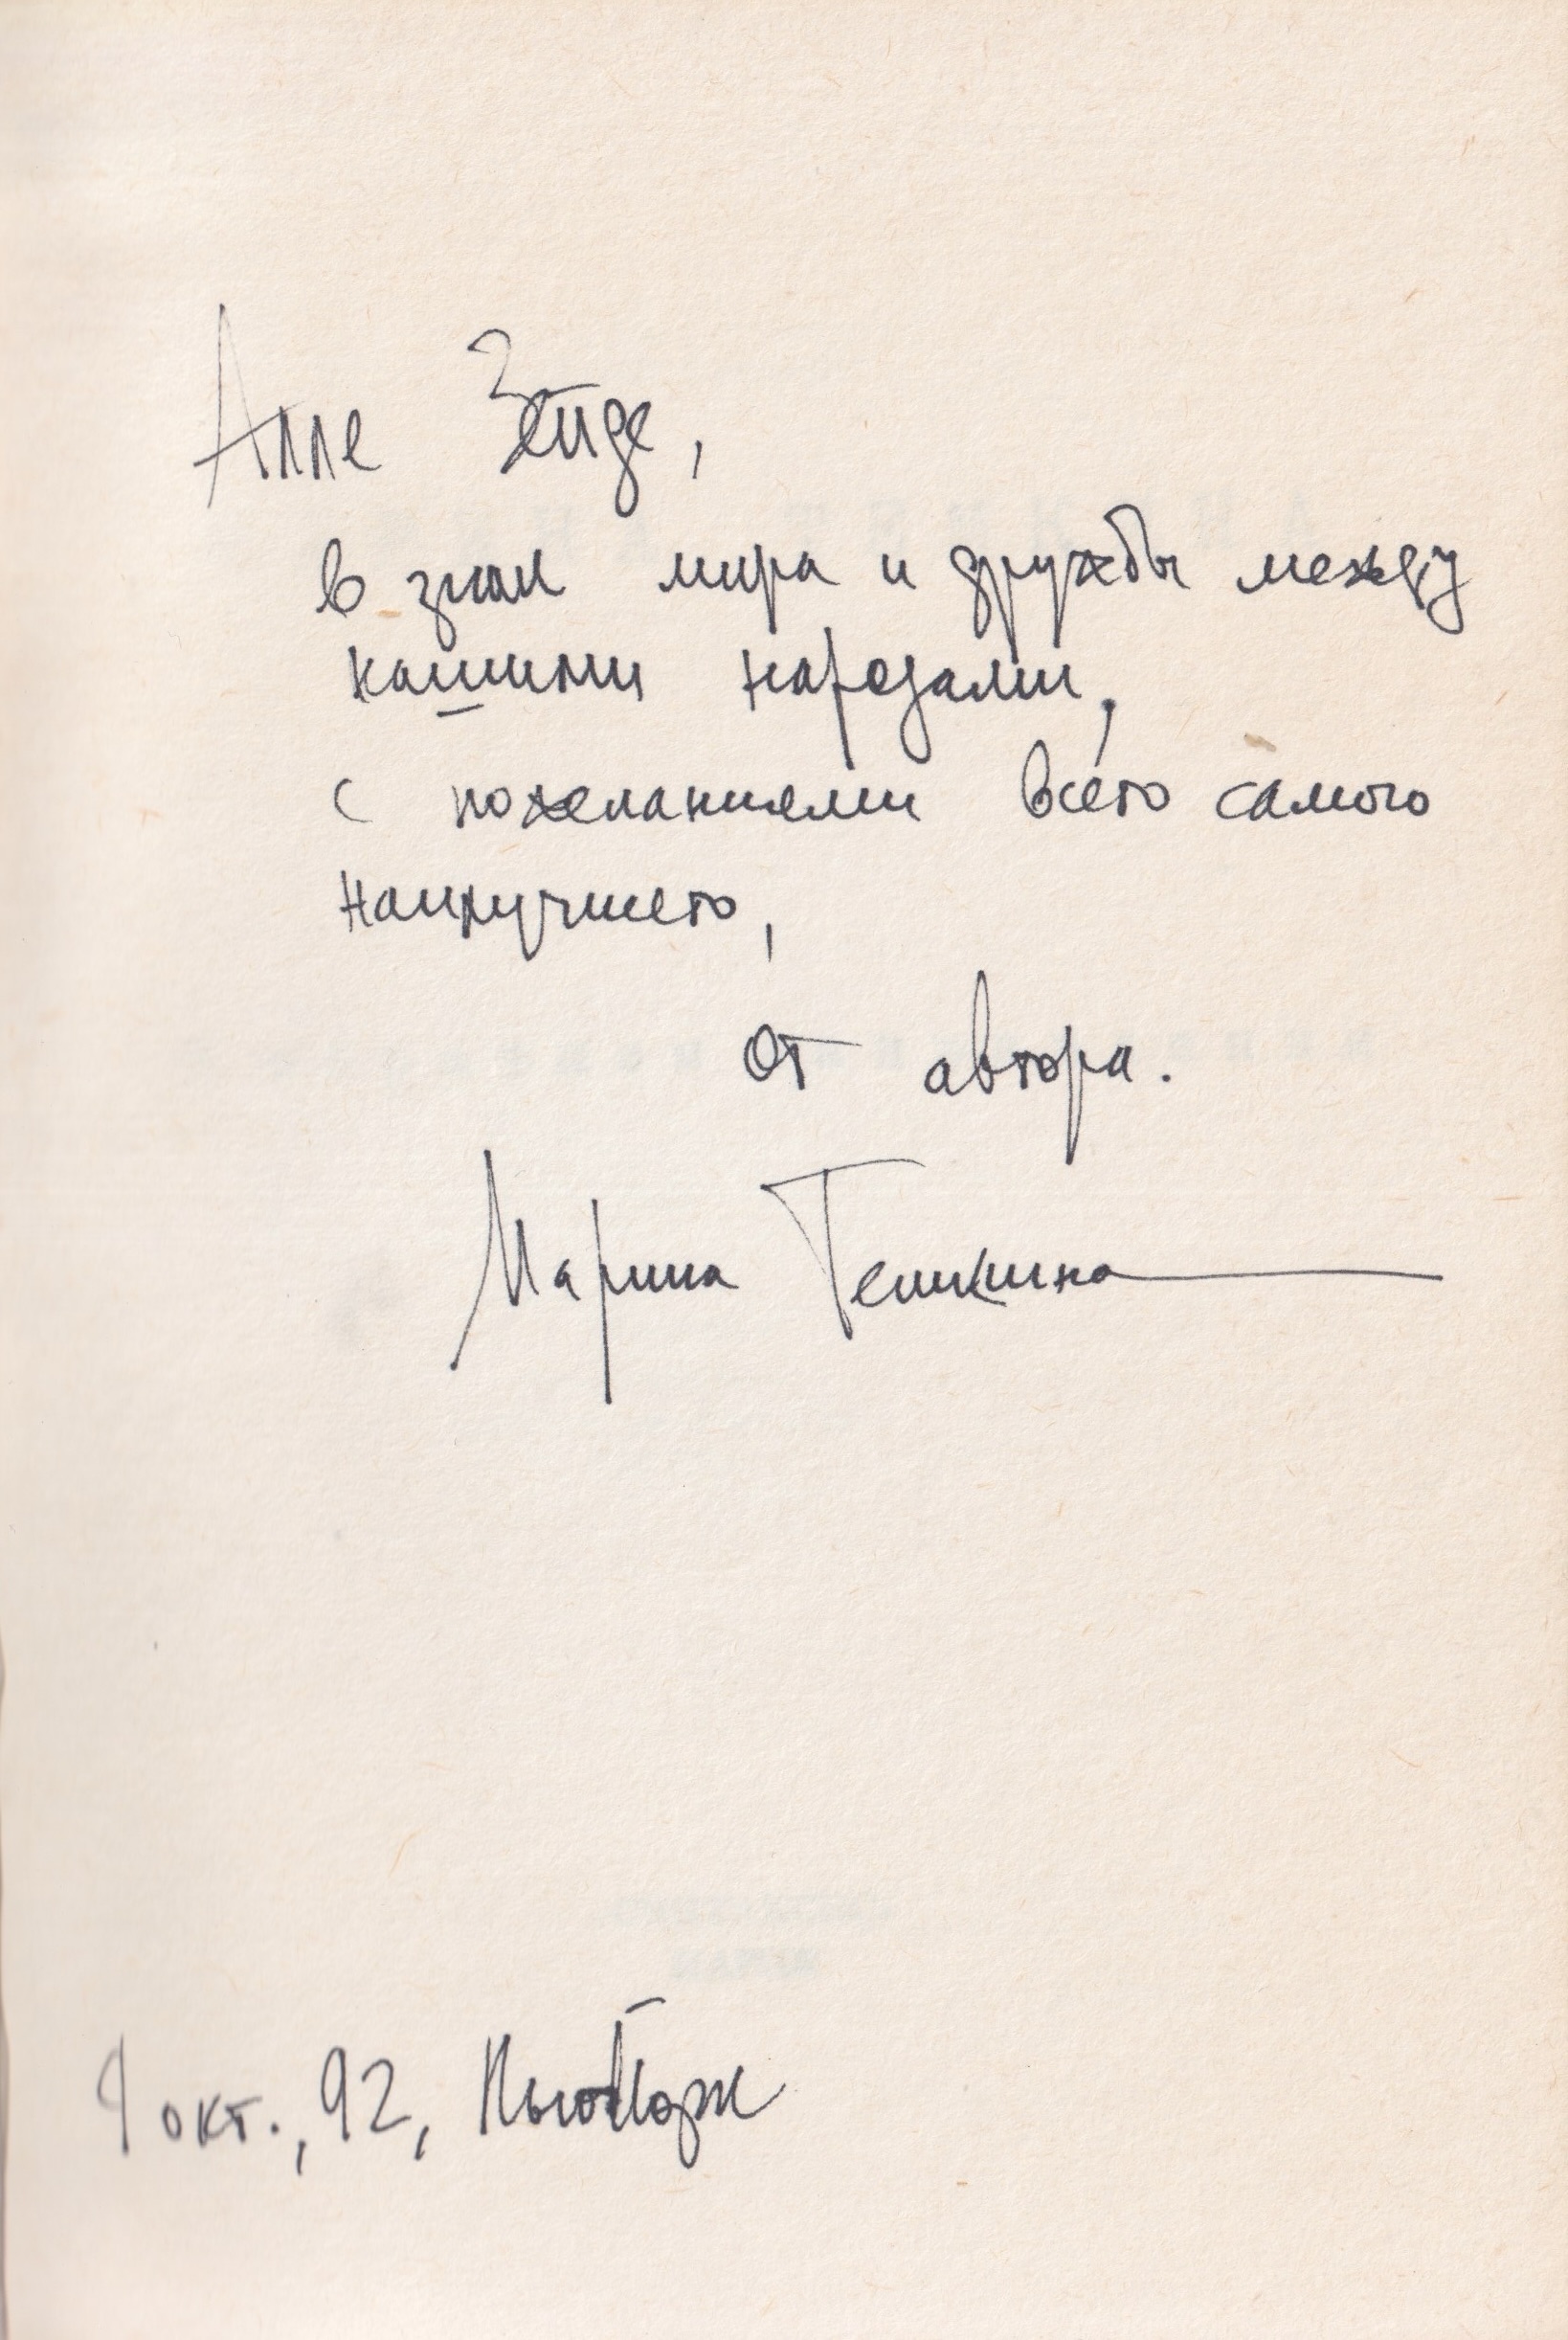 Алле Зейде,
в знак мира и дружбы между
нашими народами,
с пожеланиями всего самого
наилучшего,
от автора.
Марина Темкина
9 окт., 92, Нью Йорк